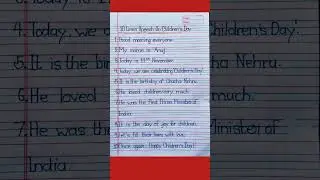 10 Lines Speech On Children's Day
1. Good morning everyone.
2. My name is
3. Today is 14th November.
4. Today, we are celebrating 'Children's Day'.
5. It is the birthday of Chacha Nehru.
6. He loved children very much.
7. He was the First Prime Minister of
India.
8. It is the day of joy for children.
9. Let's fill their lives with love.
10. Once again, Happy Children's Day!
4. Today, we
5. It is the
6. He loved
7. He was the
India.
Children's Day'.
cha Nehru.
much.
Minister of